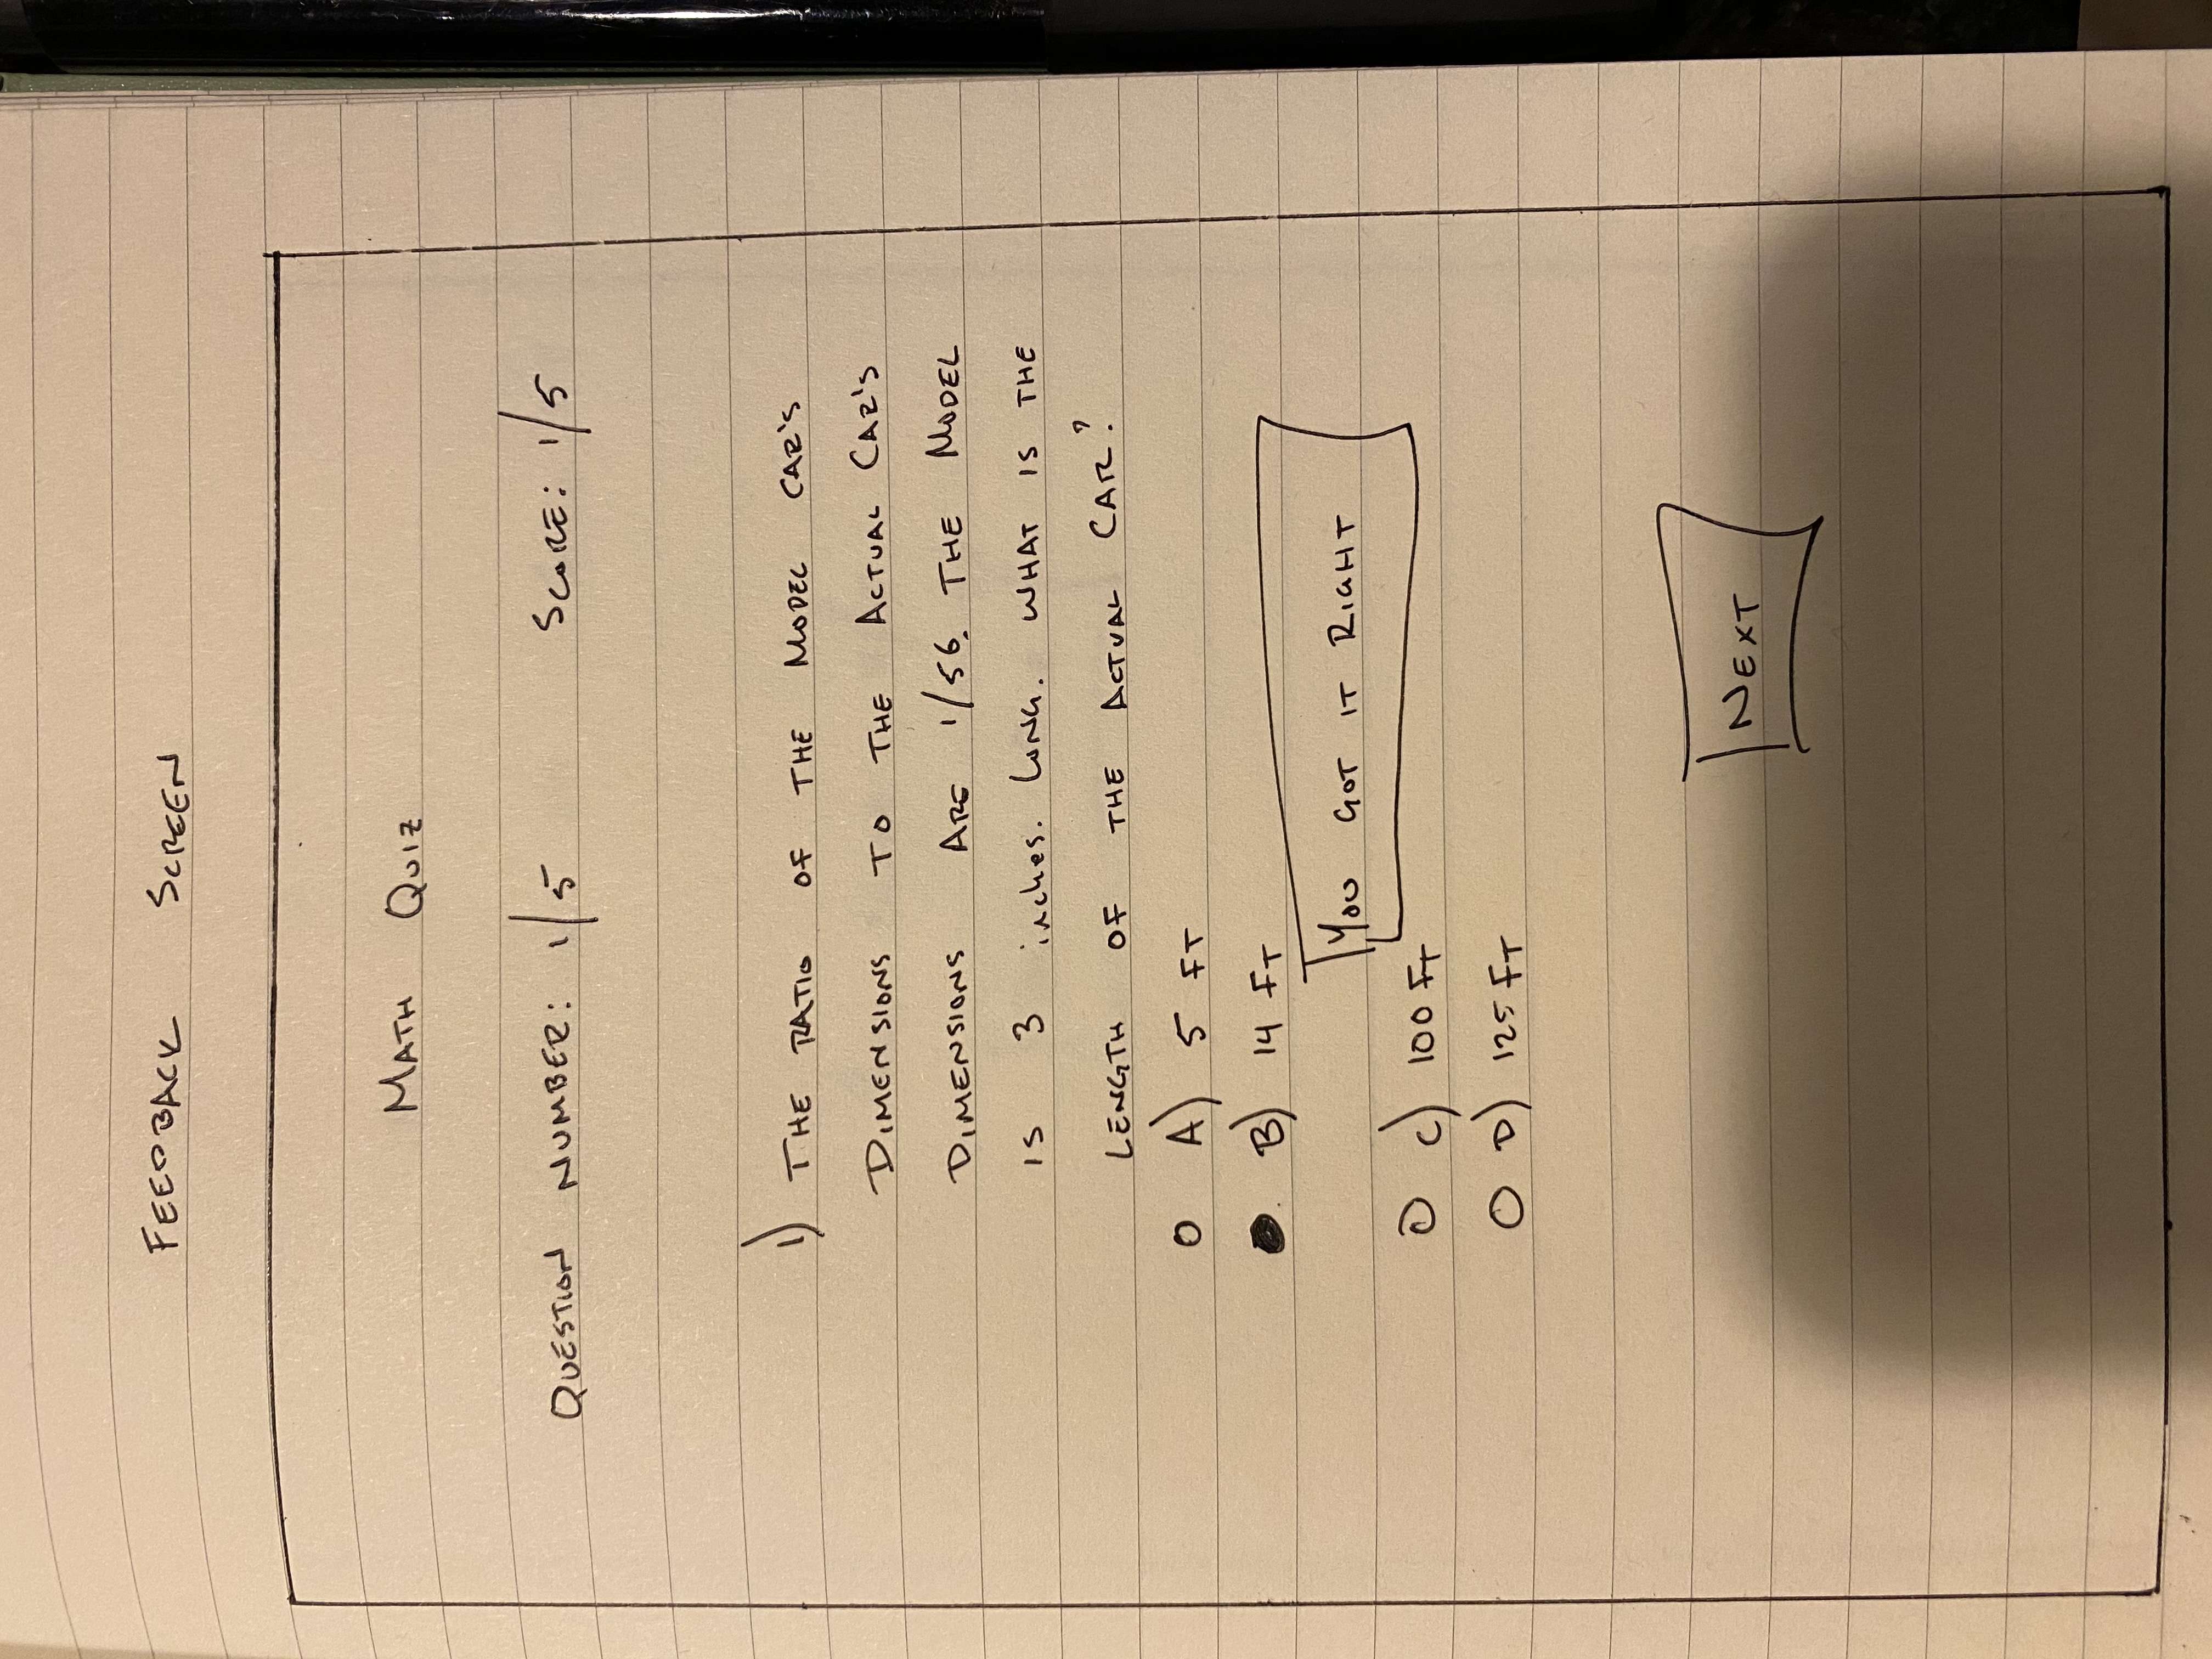 FEEDBACK SCREEN
MATH QUIZ
QUESTION NUMBER: 1/5 SCORE: 1/5
1) THE RATIO OF THE MODEL CAR'S
DIMENSIONS TO THE ACTUAL CAR'S
DIMENSIONS ARE 1/56. THE MODEL
IS 3 inches. LONG. WHAT IS THE
LENGTH OF THE ACTUAL CAR?
A) 5 FT
B) 14 FT
YOU GOT IT RIGHT
C) 100 FT
D) 125 FT
NEXT